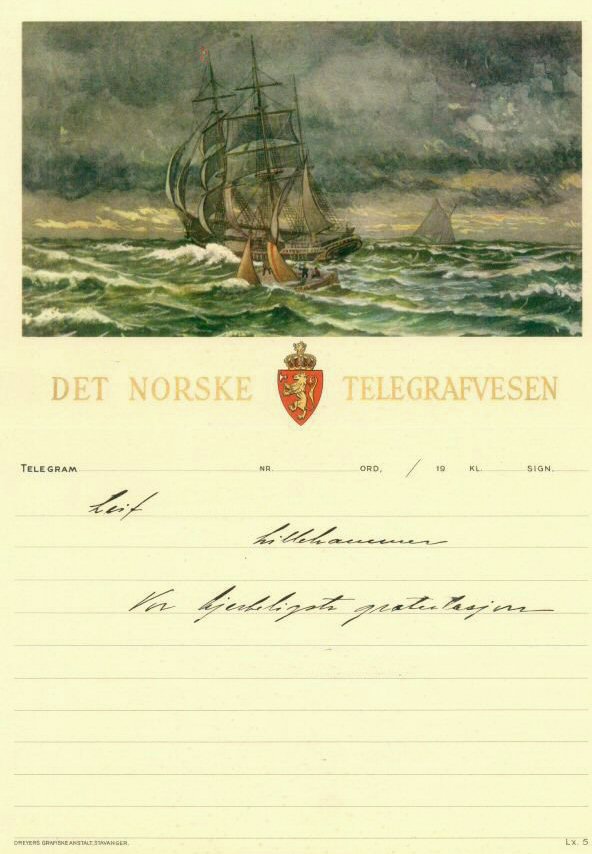 DET NORSKE TELEGRAFVESEN
TELEGRAM NR. ORD, / 19 KL. SIGN.
Leif
Lillehammer
Vor hjerteligste gratulasjon
DREYERS GRAFISKE ANSTALT, STAVANGER. Lx. 5